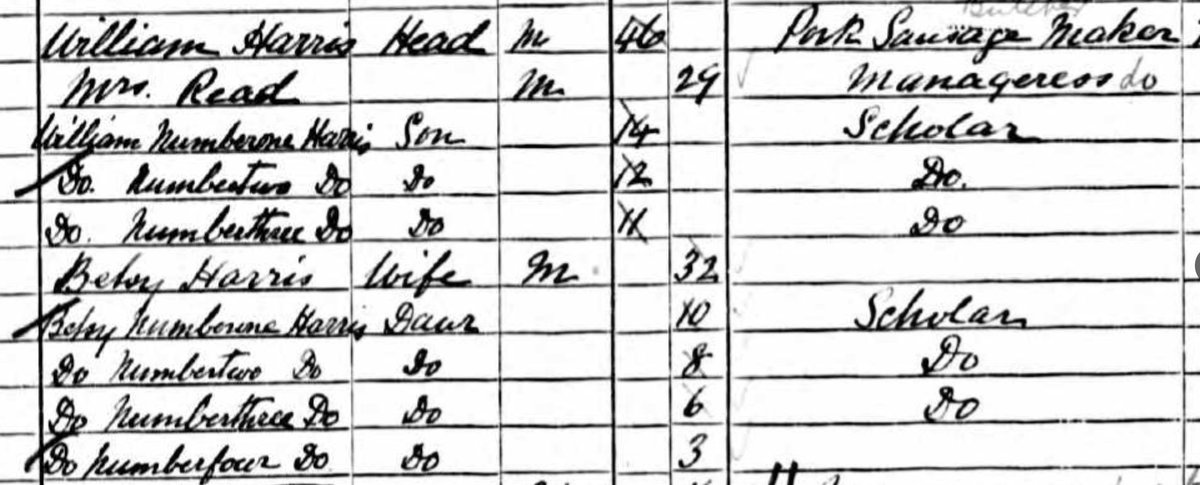 Butcher
William Harris Head M 46 Pork Sausage Maker
Mrs. Read M 29 Manageress do
William Numberone Harris Son 14 Scholar
Do. Numbertwo Do Do 12 Do.
Do. Numberthree Do Do 11 Do
Betsy Harris Wife M 32
Betsy Numberone Harris Daur 10 Scholar
Do Numbertwo Do Do 8 Do
Do Numberthree Do Do 6 Do
Do Numberfour Do Do 3